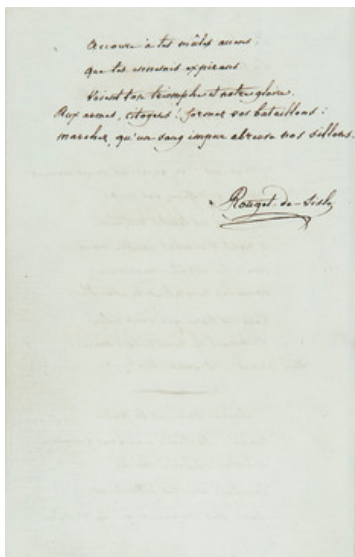 accoure à tes mâles accens;
que tes ennemis expirans
voient ton triomphe et notre gloire.
Aux armes, citoyens! formez vos bataillons:
marchez, qu'un sang impur abreuve nos sillons.
Rouget de Lisle